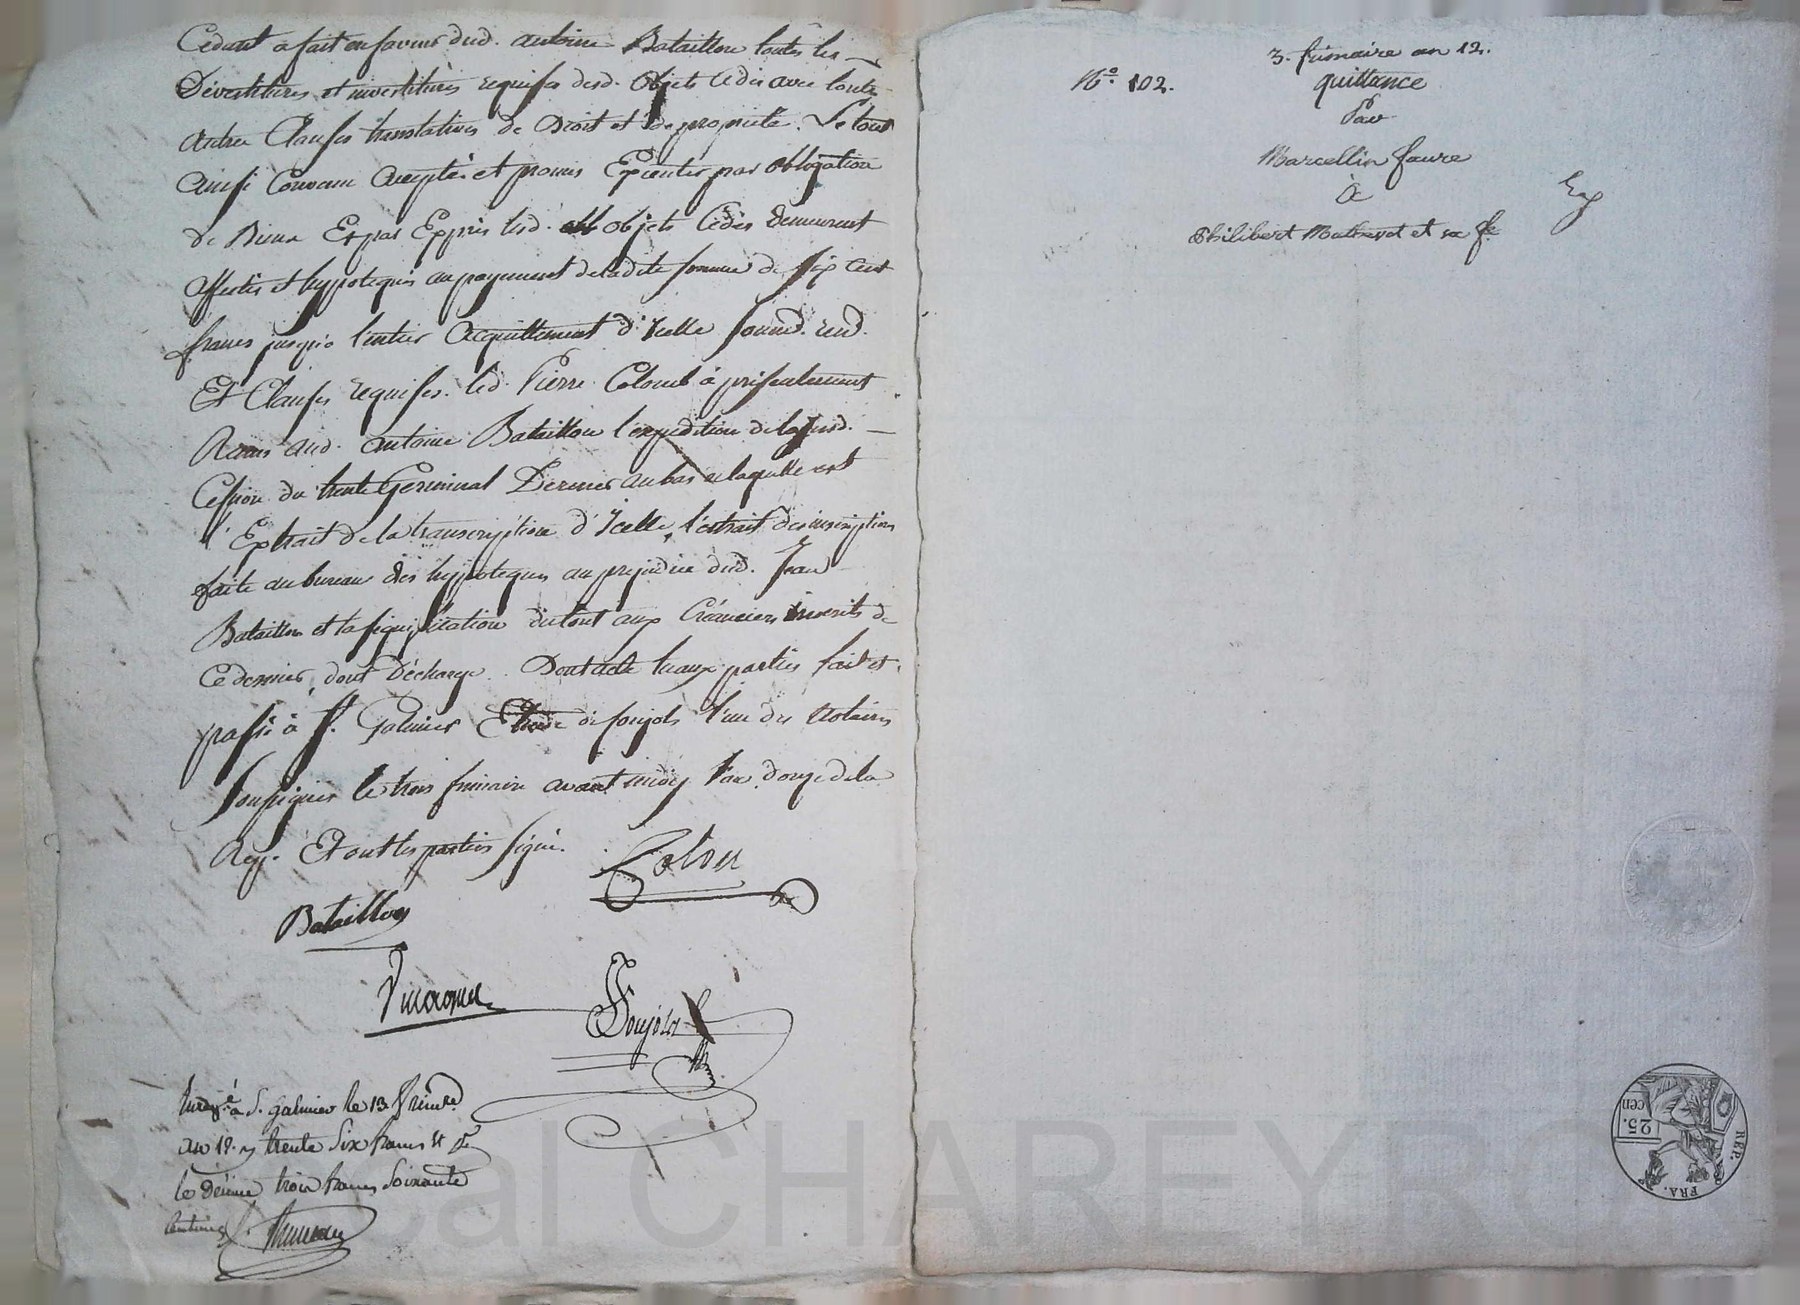 Cédant a fait en faveur dud. antoine Bataillon toutes les
Dévestitures et investitures requises desd. Objets cédés avec toute
autres Clauses translatives de Droit et de propriété. Le tout
ainsi Convenu accepté et promis Exécuter par obligation
de Biens Et par Exprès lesd. objets Cédés demeurent
affectés et hypotequés au payement de ladite somme de six cent
francs jusqu'a l'entier acquittement d'Icelle soumd. rend.
Et Clauses requises. led. Pierre Colomb à présentement
Remis aud. antoine Bataillon l'expédition de lasusd.
Cession du trente Germinal Dernier au bas de laquelle est
l'Extrait de la transcription d'Icelle, l'extrait des inscriptions
faite au bureau des hypoteques au préjudice dud. Jean
Bataillon et la signification du tout aux Créanciers inscrits de
Ce dernier, dont Décharge. Dont acte aux parties fait et
passé à St. Galmier Etude de foujols l'un des Notaires
soussignés le trois frimaire avant midy l'an douze de la
Rep. Et ont les parties signé.
Colon
Bataillon
Foujols
Enregé. à S. Galmier le 13 frimre.
an 12. trente six francs et pr
le décime trois francs soixante
centimes
3. frimaire an 12.
N°. 102.
quittance
Par
Marcellin faure
à
Philibert Mathevot et sa fe.
REP. FRA.
25.
cen
Pascal CHAREYRON